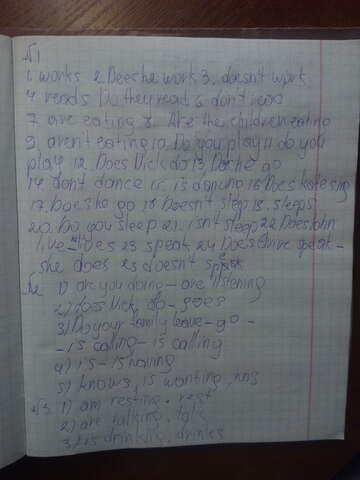 №1
1. works 2. Does he work 3. doesn't work
4 reads Do they read 6 don't read
7 are eating 8. Are the children eating
9 aren't eating 10. Do you play 11 do you
play 12. Does Nick do 13 Does he go
14 don't dance 15. is dancing 16 Does Kate sing
17. Does he go 18 Doesn't sleep 18. sleeps
20. Do you sleep 21. isn't sleep 22 Does John
live does 23 speak 24 Does drive speak -
she does 25 doesn't speak
№2 1) are you doing - are listening
2) does Nick do - goes
3) Do your family leave - go -
- is calling - is calling
4) is - is having
5) knows, is wanting,
№3. 1) am resting. rest
2) are talking. talk
3) is drinking, drinks